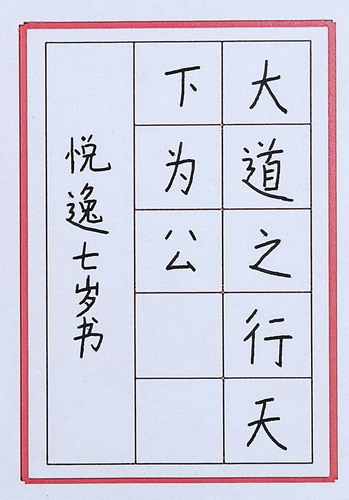 大道之行天
下为公
悦逸七岁书